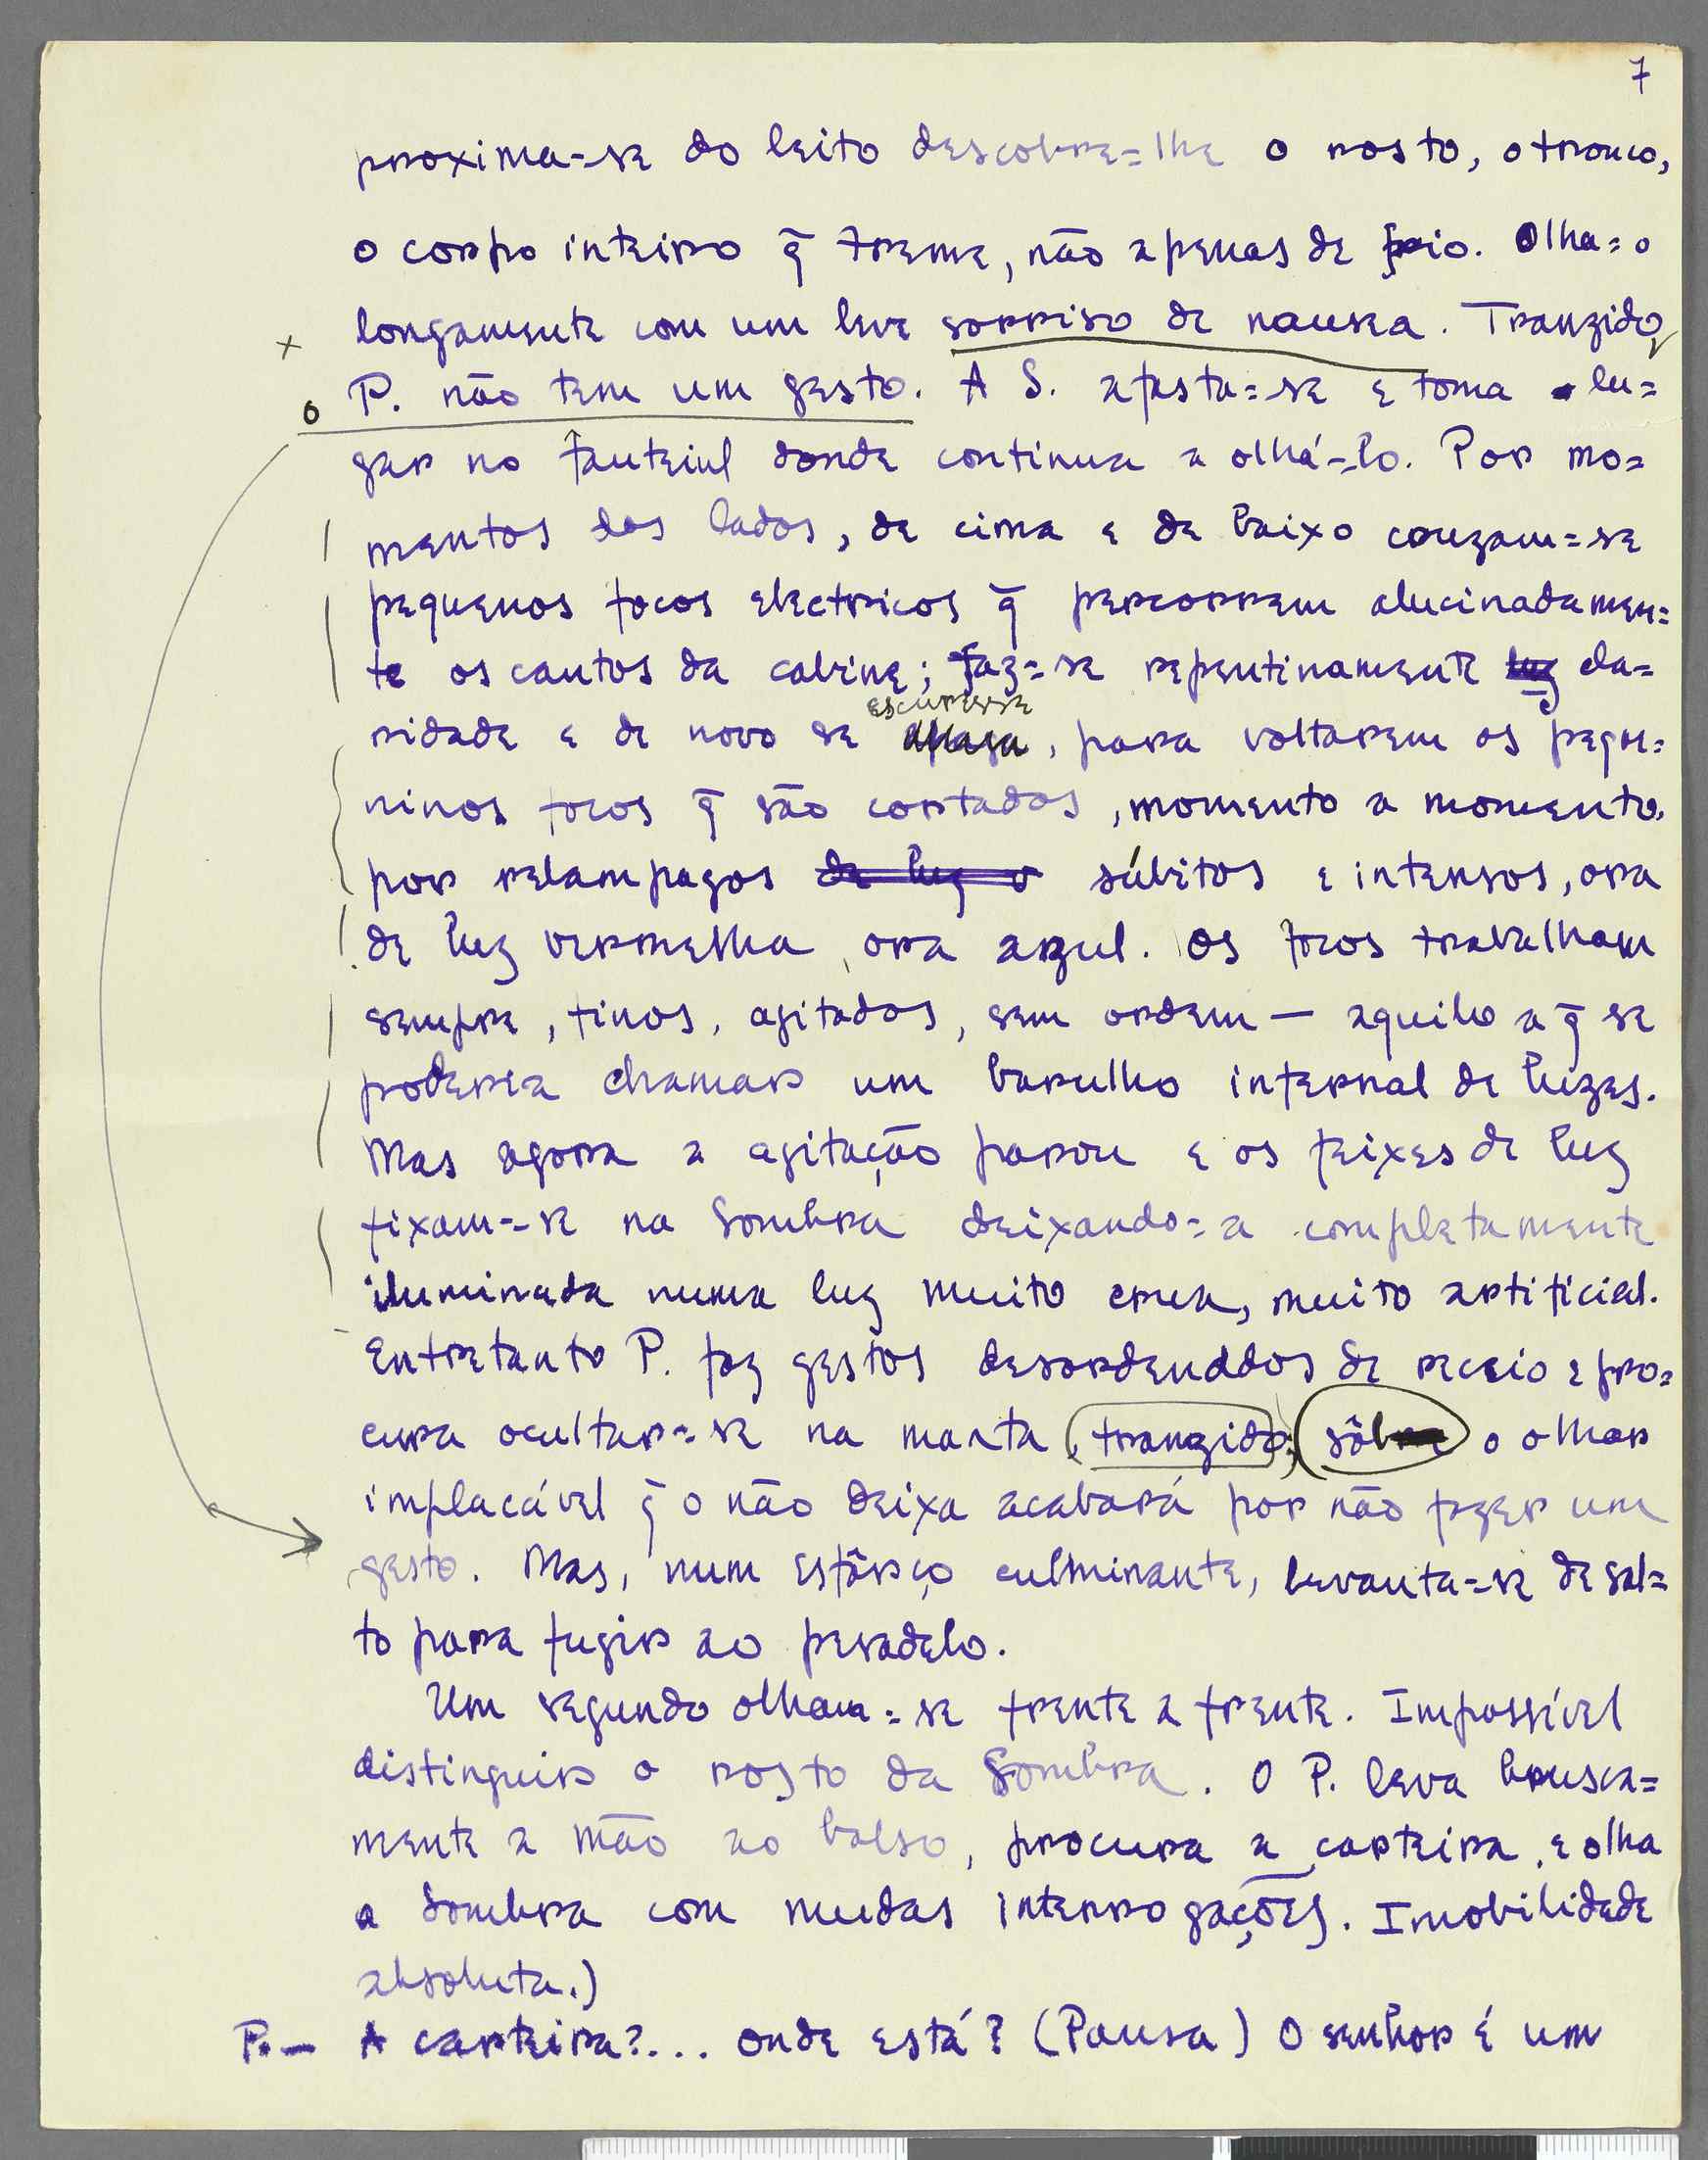 7
proxima=se do leito descobre=lhe o rosto, o tronco,
o corpo inteiro q̃ treme, não apenas de frio. Olha=o
longamente com um leve sorriso de nausea. Tranzido,
x
o P. não tem um gesto. A S. afasta=se e toma lu=
gar no fauteiul donde continua a olhá-lo. Por mo=
mentos dos lados, de cima e de baixo cruzam=se
pequenos focos electricos q̃ percorrem alucinadamen=
te os cantos da cabine; faz=se repentinamente luz cla=
escurece
ridade e de novo se apaga, para voltarem os peque=
ninos focos q̃ são cortados, momento a momento,
por relampagos de luz v súbitos e intensos, ora
de luz vermelha, ora azul. Os focos trabalham
sempre, finos, agitados, sem ordem — aquilo a q̃ se
poderia chamar um barulho infernal de luzes.
Mas agora a agitação parou e os feixes de luz
fixam=se na Sombra deixando=a completamente
iluminada numa luz muito crua, muito artificial.
Entretanto P. faz gestos desordenados de receio e pro=
cura ocultar=se na manta, tranzido; sôb o olhar
implacável q̃ o não deixa acabará por não fazer um
gesto. Mas, num esfôrço culminante, levanta-se de sal=
to para fugir ao pesadelo.
Um segundo olham=se frente a frente. Impossível
distinguir o rosto da Sombra. O P. leva brusca=
mente a mão ao bolso, procura a carteira, e olha
a Sombra com mudas interrogações. Imobilidade
absoluta.)
P. — A carteira?... Onde está? (Pausa) O senhor é um